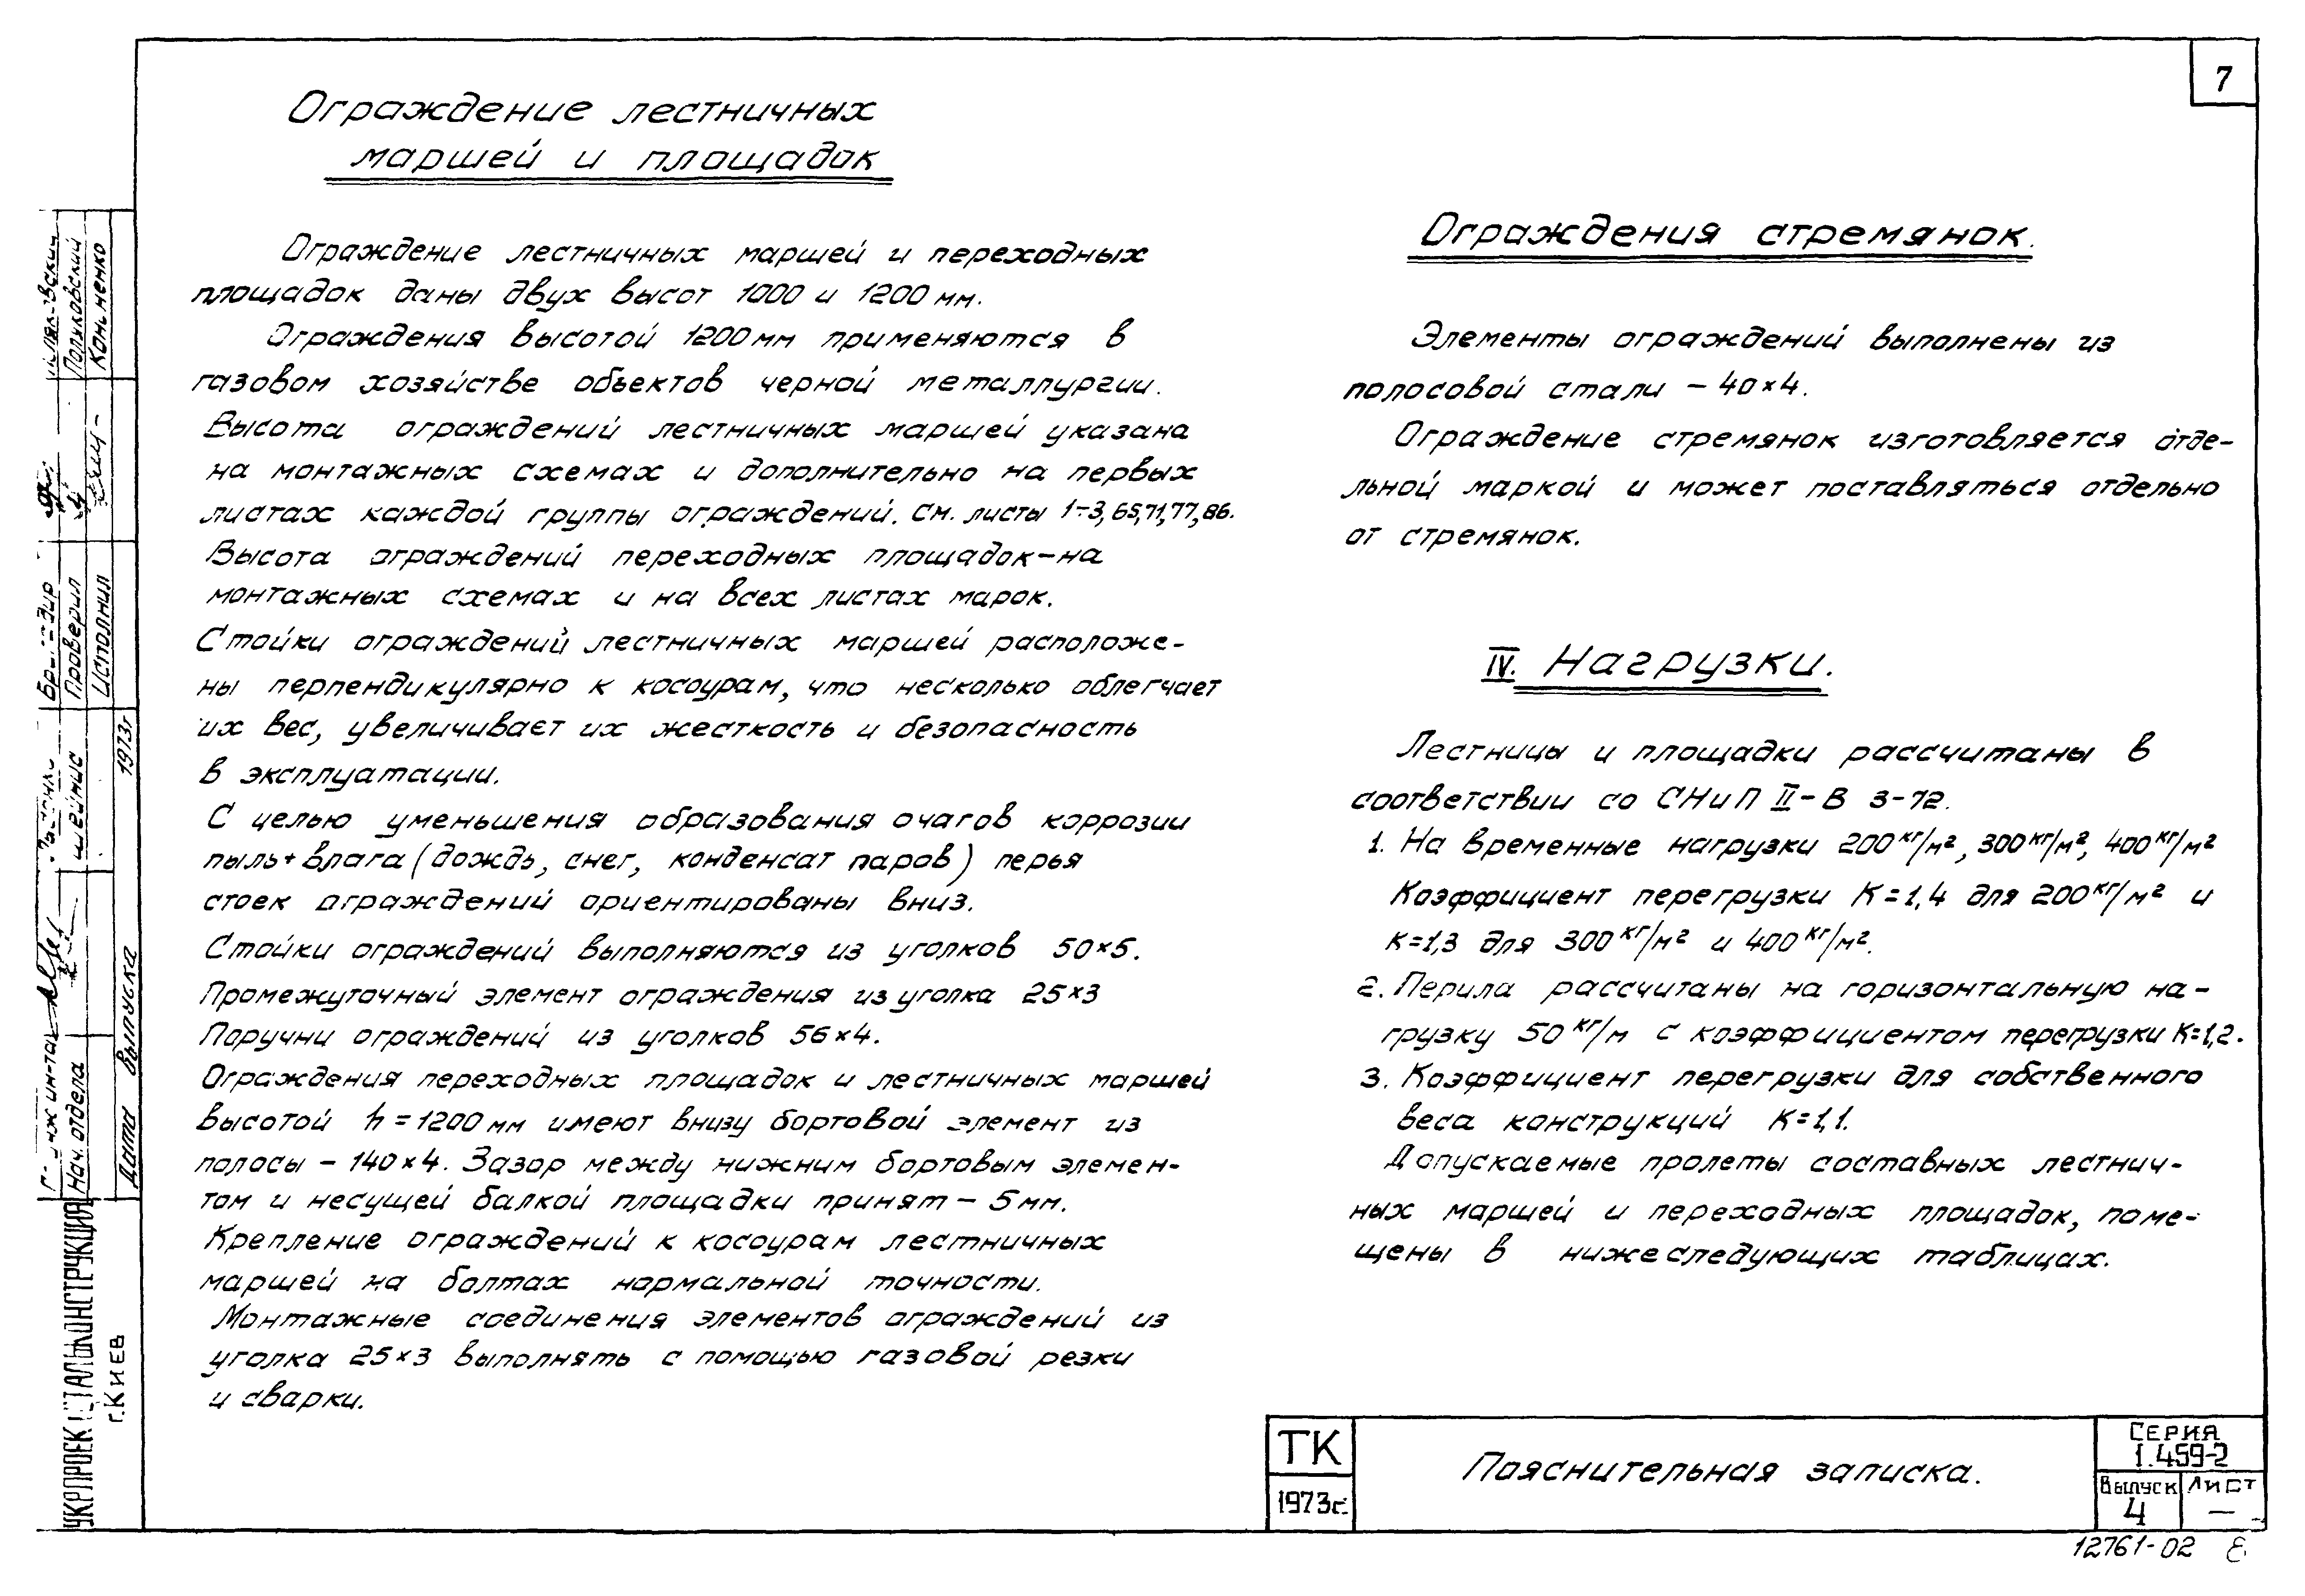 7
Ограждение лестничных
маршей и площадок
Ограждение лестничных маршей и переходных
площадок даны двух высот 1000 и 1200 мм.
Ограждения высотой 1200мм применяются в
газовом хозяйстве объектов черной металлургии.
Высота ограждений лестничных маршей указана
на монтажных схемах и дополнительно на первых
листах каждой группы ограждений. см. листы 1÷3, 65,71,77,86.
Высота ограждений переходных площадок-на
монтажных схемах и на всех листах марок.
Стойки ограждений лестничных маршей расположе-
ны перпендикулярно к косоурам, что несколько облегчает
их вес, увеличивает их жесткость и безопасность
в эксплуатации.
С целью уменьшения образования очагов коррозии
пыль+влага (дождь, снег, конденсат паров) перья
стоек ограждений ориентированы вниз.
Стойки ограждений выполняются из уголков 50×5.
Промежуточный элемент ограждения из уголка 25×3
Поручни ограждений из уголков 56×4.
Ограждения переходных площадок и лестничных маршей
высотой h=1200мм имеют внизу бортовой элемент из
полосы - 140×4. Зазор между нижним бортовым элемен-
том и несущей балкой площадки принят - 5 мм.
Крепление ограждений к косоурам лестничных
маршей на болтах нормальной точности.
Монтажные соединения элементов ограждений из
уголка 25×3 выполнять с помощью газовой резки
и сварки.
Ограждения стремянок.
Элементы ограждений выполнены из
полосовой стали - 40×4.
Ограждение стремянок изготовляется отде-
льной маркой и может поставляться отдельно
от стремянок.
IV. Нагрузки.
Лестницы и площадки рассчитаны в
соответствии со СНиП II-В 3-72.
1. На временные нагрузки 200 кг/м², 300 кг/м², 400 кг/м²
Коэффициент перегрузки К=1,4 для 200 кг/м² и
К=1,3 для 300 кг/м² и 400 кг/м².
2. Перила рассчитаны на горизонтальную на-
грузку 50 кг/м с коэффициентом перегрузки К=1,2.
3. Коэффициент перегрузки для собственного
веса конструкций К=1,1.
Допускаемые пролеты составных лестнич-
ных маршей и переходных площадок, поме-
щены в нижеследующих таблицах.
ТК
1973г.
Пояснительная записка.
Серия
1.459-2
Выпуск Лист
4 —
12761-02 8
Поляковский
Кономенко
Проверил
Исполнил
1973г
Шеймис
Нач. отдела
Дата выпуска
г. Киев